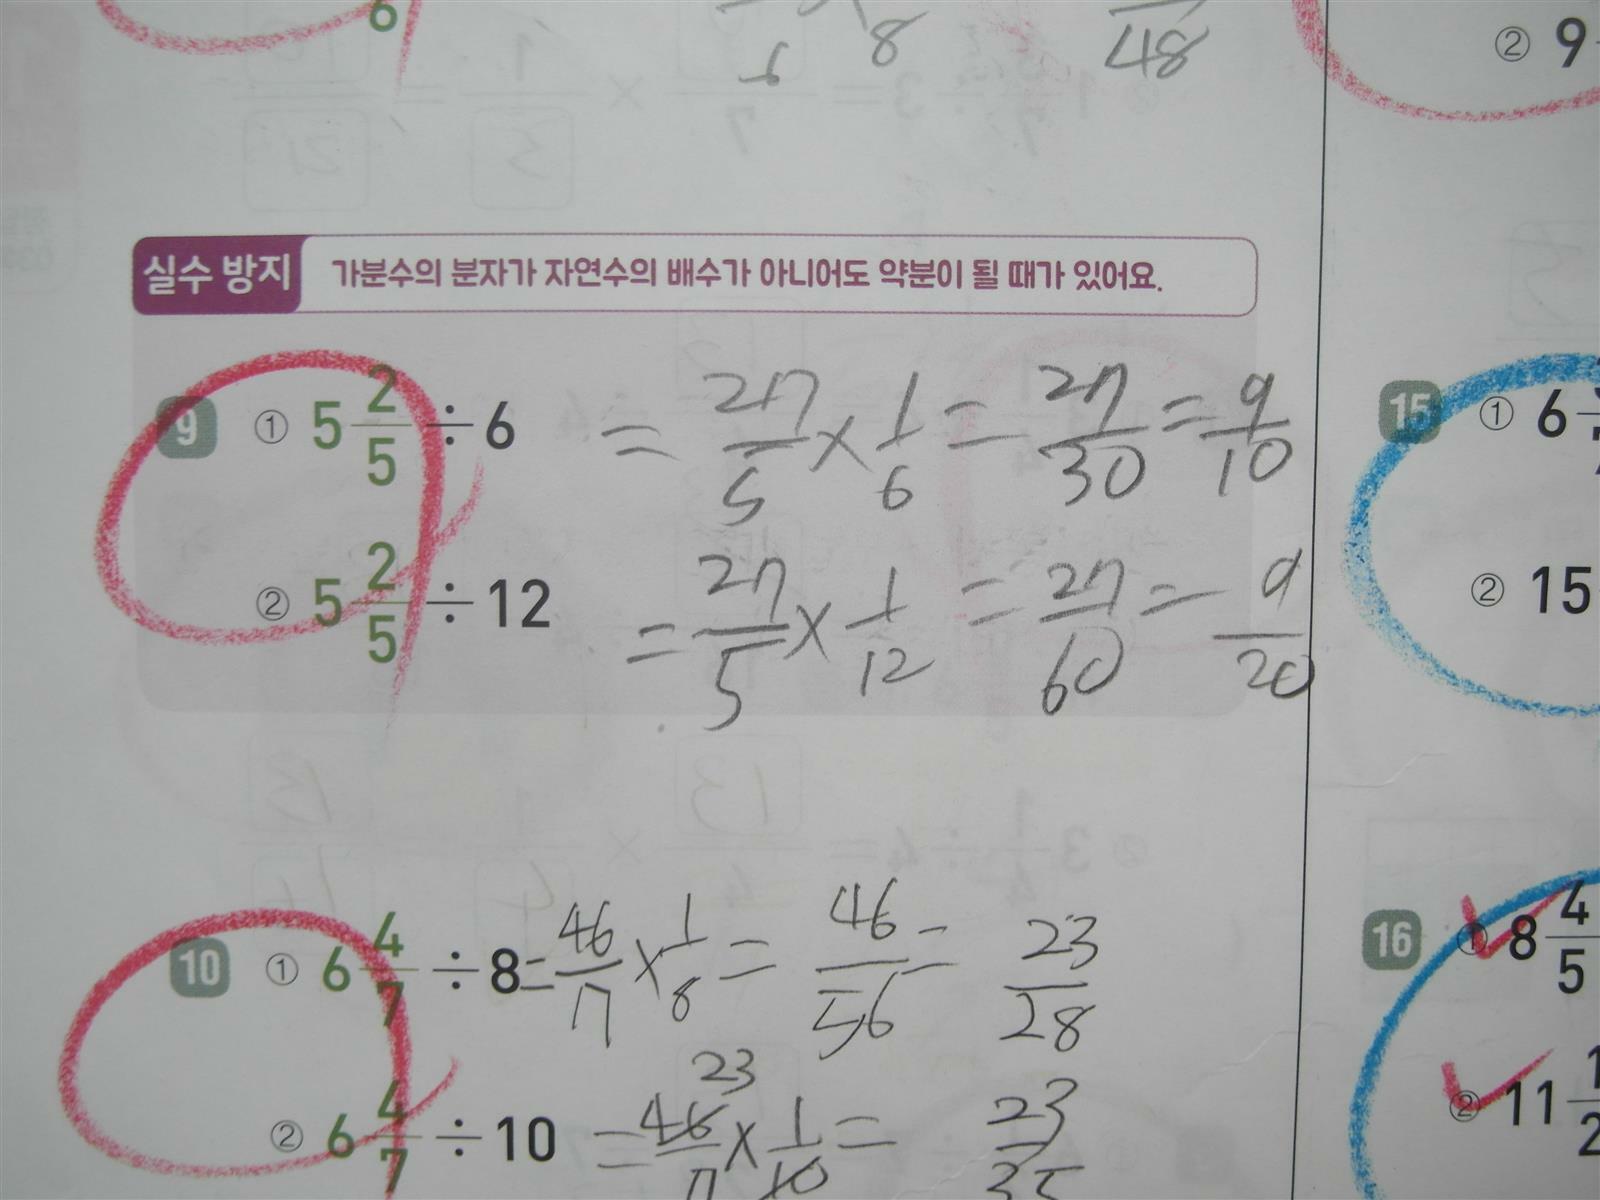 6
8
6
48
② 9
실수 방지 가분수의 분자가 자연수의 배수가 아니어도 약분이 될 때가 있어요.
9 ① 5 2/5 ÷ 6 = 27/5 × 1/6 = 27/30 = 9/10
② 5 2/5 ÷ 12 = 27/5 × 1/12 = 27/60 = 9/20
10 ① 6 4/7 ÷ 8 = 46/7 × 1/8 = 46/56 = 23/28
23
② 6 4/7 ÷ 10 = 46/7 × 1/10 = 23/35
15 ① 6
② 15
16 ① 8 4/5
② 11 1/2